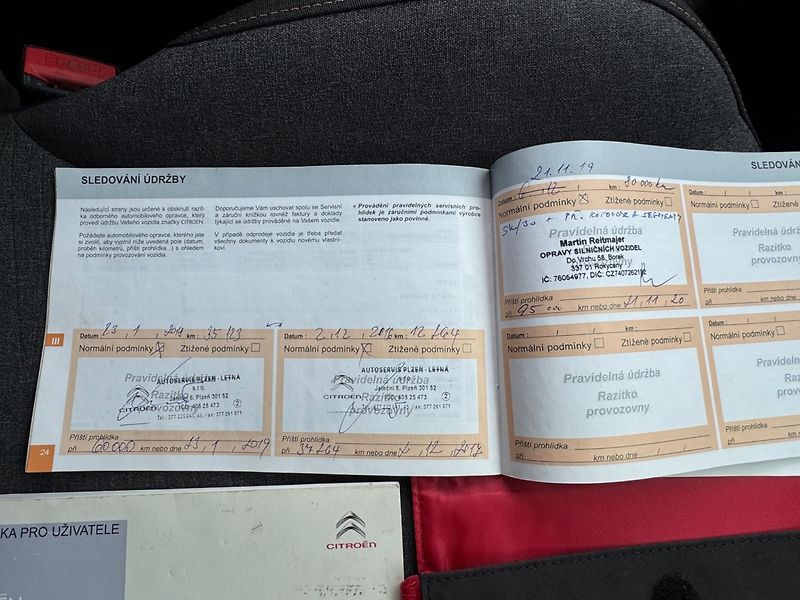 PRESS
SLEDOVÁNÍ ÚDRŽBY
Následující strany jsou určené k otisknutí razít-
ka odborného automobilového opravce, který
provedl údržbu Vašeho vozidla značky CITROËN.
Požádejte automobilového opravce, kterého jste
si zvolili, aby vyplnil níže uvedená pole (datum,
proběh kilometrů, příští prohlídka...) s ohledem
na podmínky provozování vozidla.
Doporučujeme Vám uschovat spolu se Servisní
a záruční knížkou rovněž faktury a doklady
týkající se údržby prováděné na Vašem vozidle.
V případě odprodeje vozidla je třeba předat
všechny dokumenty k vozidlu novému vlastní-
kovi.
Provádění pravidelných servisních pro-
hlídek je záručními podmínkami výrobce
stanoveno jako povinné.
III
Datum : 23, 1, km : 35
Normální podmínky Ztížené podmínky
Pravidelná údržba
Razítko
provozovny
AUTOSERVIS PLZEŇ - LETNÁ
s.r.o.
8, Plzeň 301 52
CITROËN 405 25 473
2
Příští prohlídka
při 60000 km nebo dne 23, 1, 2019
Datum : 2, 12, 2016 km : 12 464
Normální podmínky Ztížené podmínky
Pravidelná údržba
Razítko
provozovny
AUTOSERVIS PLZEŇ - LETNÁ
Jateční 8, Plzeň 301 52
CITROËN 405 25 473
2
377 261 071
Příští prohlídka
při km nebo dne 12, 2017
24
SLEDOVÁN
21.11.19
Datum : 80 000 km
Normální podmínky Ztížené podmínky
5W/30 + PŘ.
Pravidelná údržba
Razítko
Martin Reitmajer
OPRAVY SILNIČNÍCH VOZIDEL
Do Vrchu 58, Borek
337 01 Rokycany
IČ: 76054977, DIČ:
Příští prohlídka
při 95 000 km nebo dne 21, 11, 20
Datum : / / km :
Normální podmínky
Pravidelná
Razítko
provozovny
Příští prohlídka
při km nebo dne / /
Datum : / / km :
Normální podmínky Ztížené podmínky
Pravidelná údržba
Razítko
provozovny
Příští prohlídka
při km nebo dne / /
Datum : /
Normální podmínky
Razítko
Příští prohlídka
při
KA PRO UŽIVATELE
CITROËN